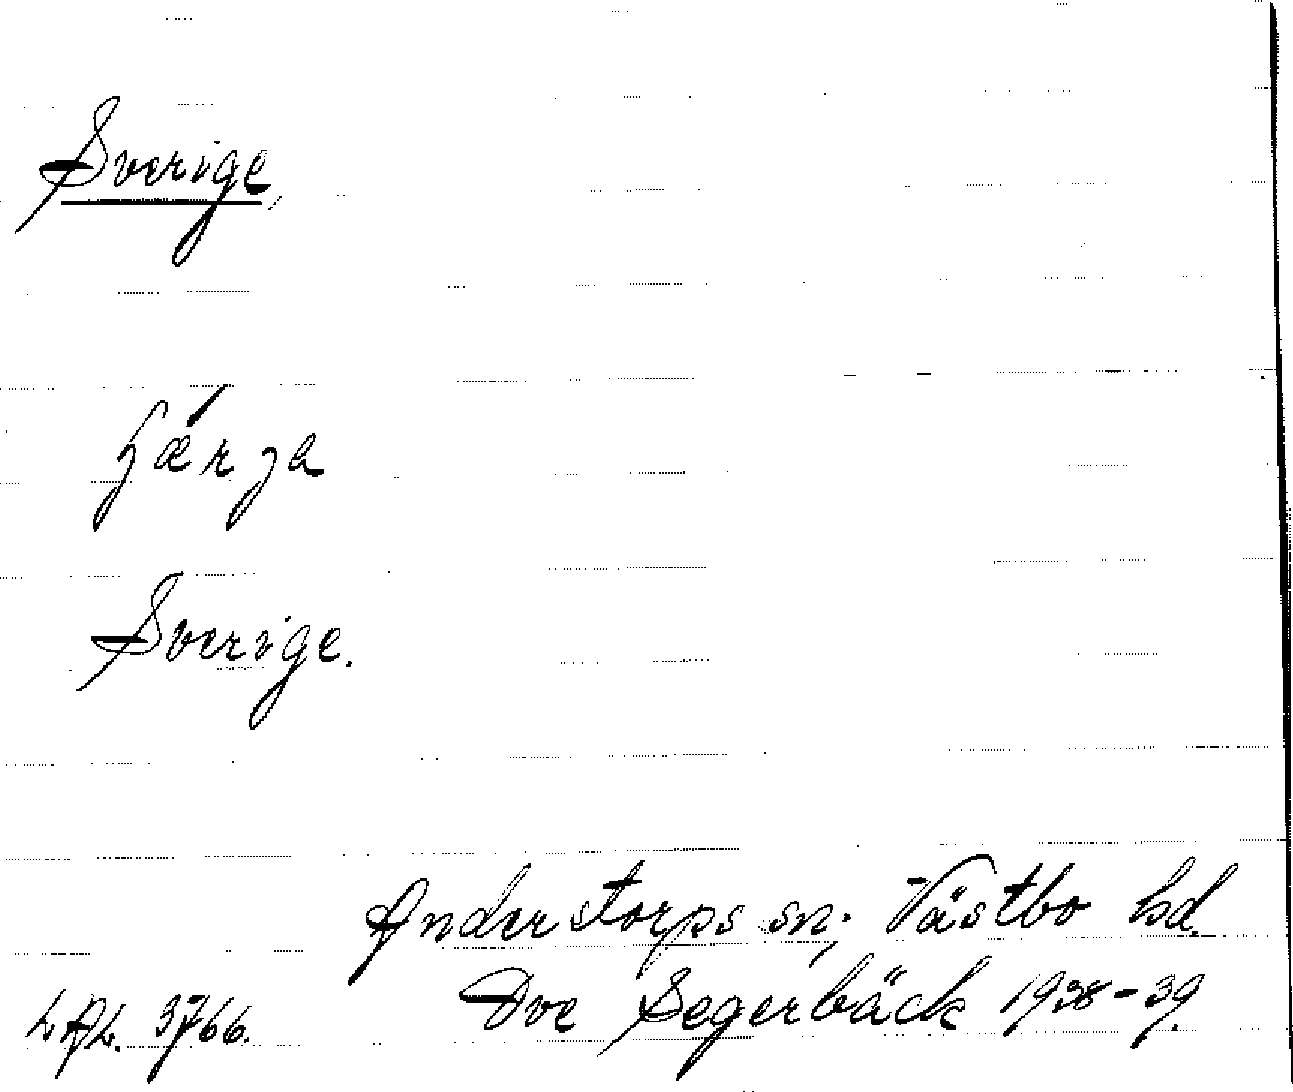 Sverige,
Sverige.
Anderstorps sn; Västbo hd.
Segerbäck 1938-39.
3766.